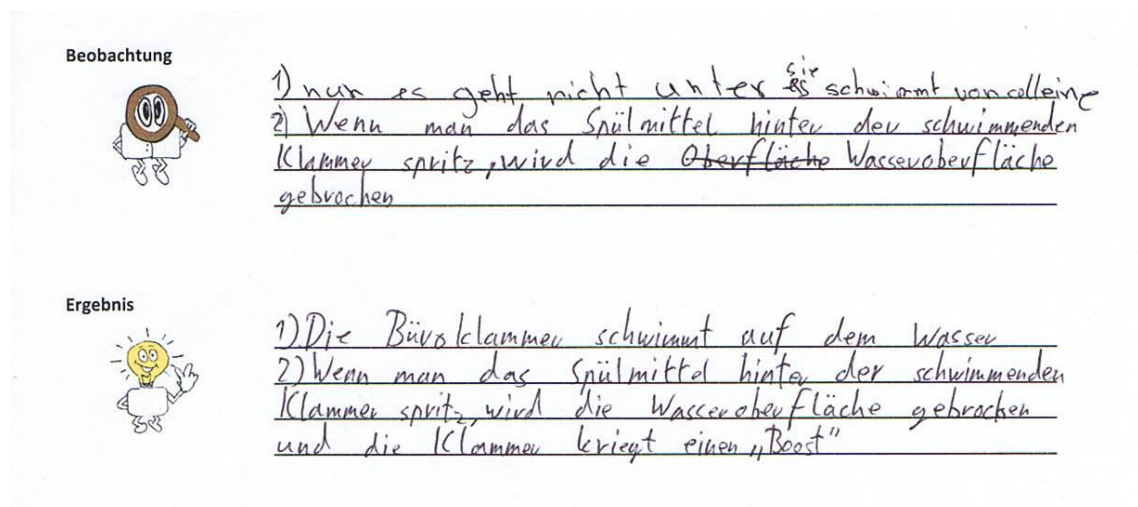 Beobachtung
1) nun es geht nicht unter sie schwimmt von alleine
2) Wenn man das Spülmittel hinter der schwimmenden
Klammer spritz, wird die Oberfläche Wasseroberfläche
gebrochen
Ergebnis
1) Die Büroklammer schwimmt auf dem Wasser
2) Wenn man das Spülmittel hinter der schwimmenden
Klammer spritz, wird die Wasseroberfläche gebrochen
und die Klammer kriegt einen „Boost"